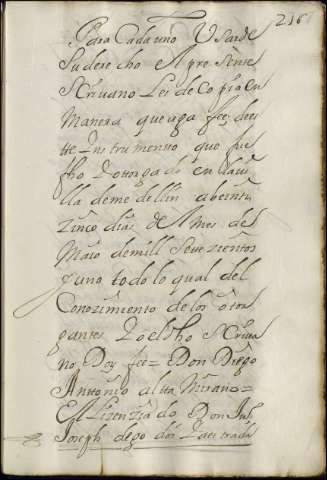 216
Para Cada uno Usar de
Su derecho el pre sente
Scriuano Les de Copia en
Manera que aga fee; de es
te Ynstrumento que fue
fho Y otorgado en la ui
lla de me dellin a beinti
zinco dias de el mes de
Maio de mill Setezientos
y uno todo lo qual del
Conozimiento de los otor
gantes Yo el dho Scriua
no Doy fee = Don Diego
Antonio alta Mirano =
El Lizenziado Don Juº
Joseph de go doi